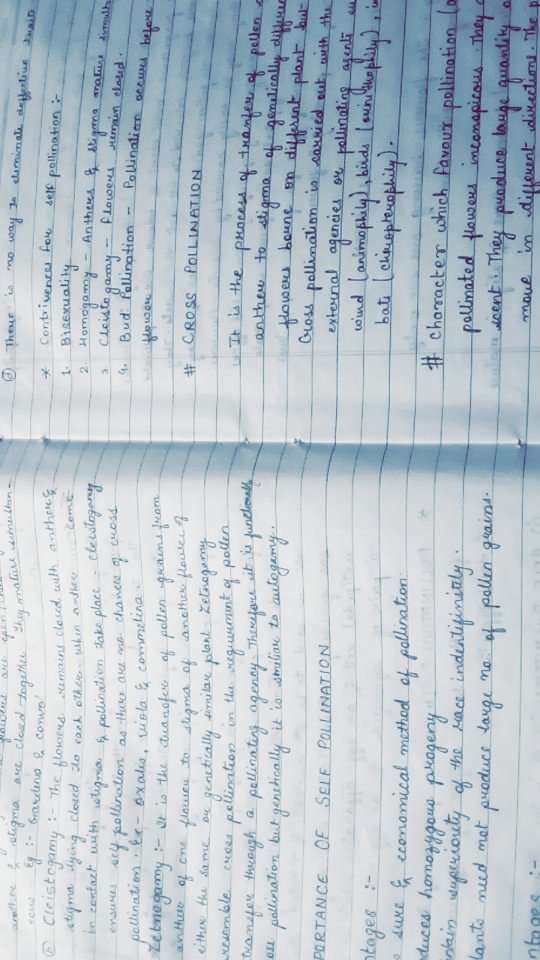 flowers are open
anther & stigma are closed together. They mature simultan-
eous Eg :-
Cleistogamy :- The flowers remains closed with anther &
stigma lying closed to each other when anther come
in contact with stigma & pollination take place. Cleistogamy
ensures self pollination as there are no chances of cross
pollination. Ex - oxalis, viola & commelina.
:- It is the transfer of pollen grains from
anther of one flower to stigma of another flower of
either the same or genetically similar plant.
resemble cross pollination in the requirement of pollen
transfer through a pollinating agency therefore it is
pollination but genetically it is similar to autogamy.
PORTANCE OF SELF POLLINATION
ntages :-
s sure & economical method of pollination.
duces homozygous progeny
superiority of the race indentifinitely.
lants need not produce large no. of pollen grains.
ntages :-
d) There is no way to eliminate deffective traits
* Contrivences for self pollination :-
1. Bisexuality
2. Homogamy - Anthers & stigma mature simult
3. Cleistogamy - flowers remain closed.
4. Bud Pollination - Pollination occurs before
flower
# CROSS POLLINATION
It is the process of transfer of pollen
anther to stigma of genetically differen
flowers borne on different plant but
Cross pollination is carried out with the
external agencies or pollinating agents
wind (animophily), birds (ornithophily),
bats (chiropterophily).
# Character which favour pollination
pollinated flowers inconspicous. They
scent. They produce large quantity
move in different directions. The p